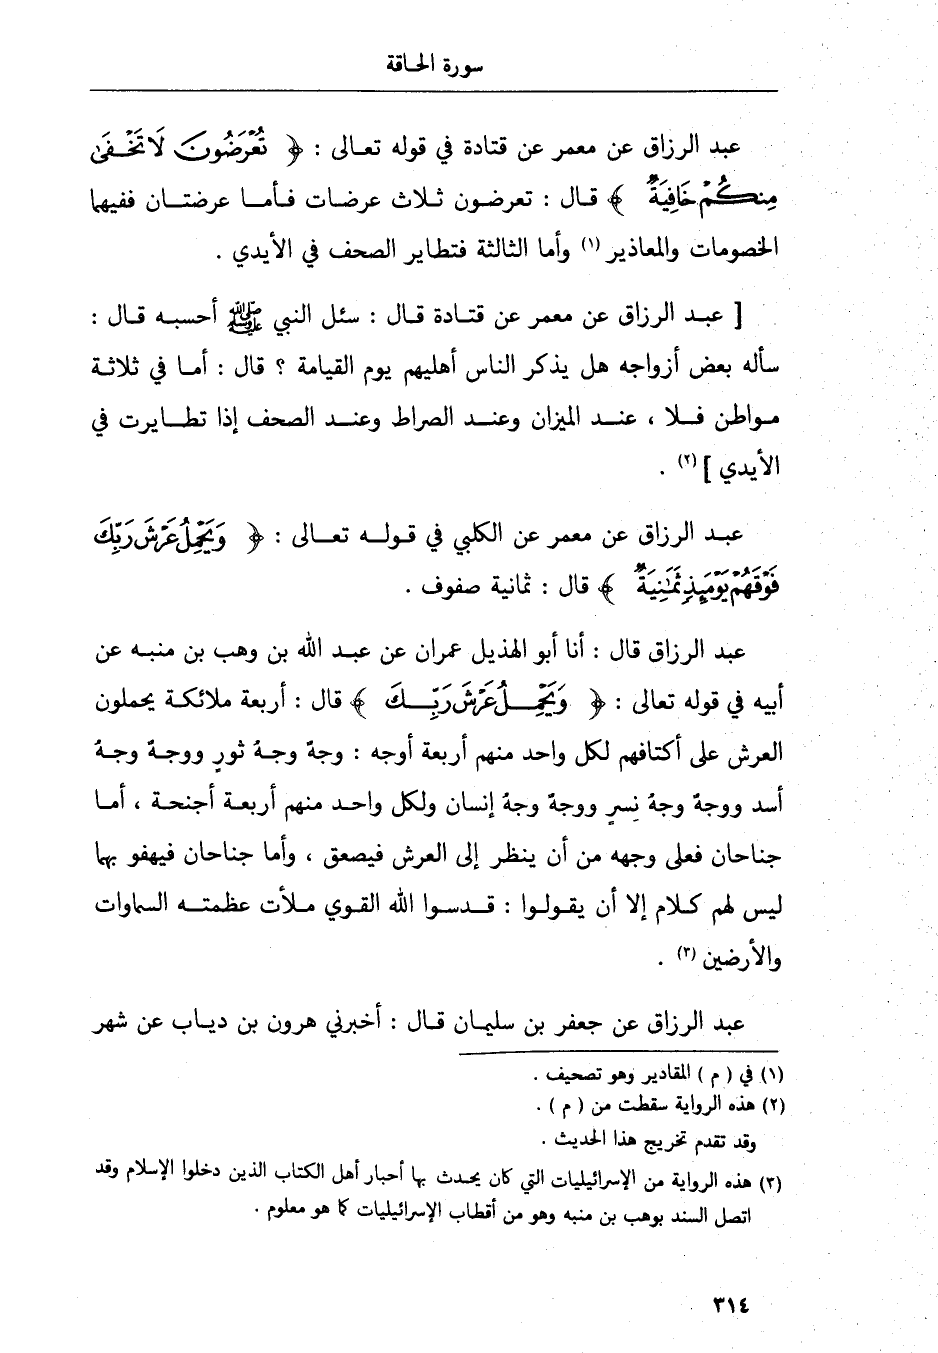 سورة الحاقة
عبد الرزاق عن معمر عن قتادة في قوله تعالى : ﴿ تُعْرَضُونَ لَا تَخْفَىٰ
مِنكُمْ خَافِيَةٌ ﴾ قال : تعرضون ثلاث عرضات فأما عرضتان ففيهما
الخصومات والمعاذير (١) وأما الثالثة فتطاير الصحف في الأيدي .
[ عبد الرزاق عن معمر عن قتادة قال : سئل النبي ﷺ أحسبه قال :
سأله بعض أزواجه هل يذكر الناس أهليهم يوم القيامة ؟ قال : أما في ثلاثة
مواطن فلا ، عند الميزان وعند الصراط وعند الصحف إذا تطايرت في
الأيدي ] (٢) .
عبد الرزاق عن معمر عن الكلبي في قوله تعالى : ﴿ وَيَحْمِلُ عَرْشَ رَبِّكَ
فَوْقَهُمْ يَوْمَئِذٍ ثَمَٰنِيَةٌ ﴾ قال : ثمانية صفوف .
عبد الرزاق قال : أنا أبو الهذيل عمران عن عبد الله بن وهب بن منبه عن
أبيه في قوله تعالى : ﴿ وَيَحْمِلُ عَرْشَ رَبِّكَ ﴾ قال : أربعة ملائكة يحملون
العرش على أكتافهم لكل واحد منهم أربعة أوجه : وجهٌ وجهُ ثورٍ ووجهٌ وجهُ
أسد ووجهٌ وجهُ نسرٍ ووجهٌ وجهُ إنسان ولكل واحد منهم أربعة أجنحة ، أما
جناحان فعلى وجهه من أن ينظر إلى العرش فيصعق ، وأما جناحان فيهفو بهما
ليس لهم كلام إلا أن يقولوا : قدسوا الله القوي ملأت عظمته السماوات
والأرضين (٣) .
عبد الرزاق عن جعفر بن سليمان قال : أخبرني هرون بن دياب عن شهر
(١) في ( م ) المقادير وهو تصحيف .
(٢) هذه الرواية سقطت من ( م ) .
وقد تقدم تخريج هذا الحديث .
(٣) هذه الرواية من الإسرائيليات التي كان يحدث بها أحبار أهل الكتاب الذين دخلوا الإسلام وقد
اتصل السند بوهب بن منبه وهو من أقطاب الإسرائيليات كما هو معلوم .
٣١٤